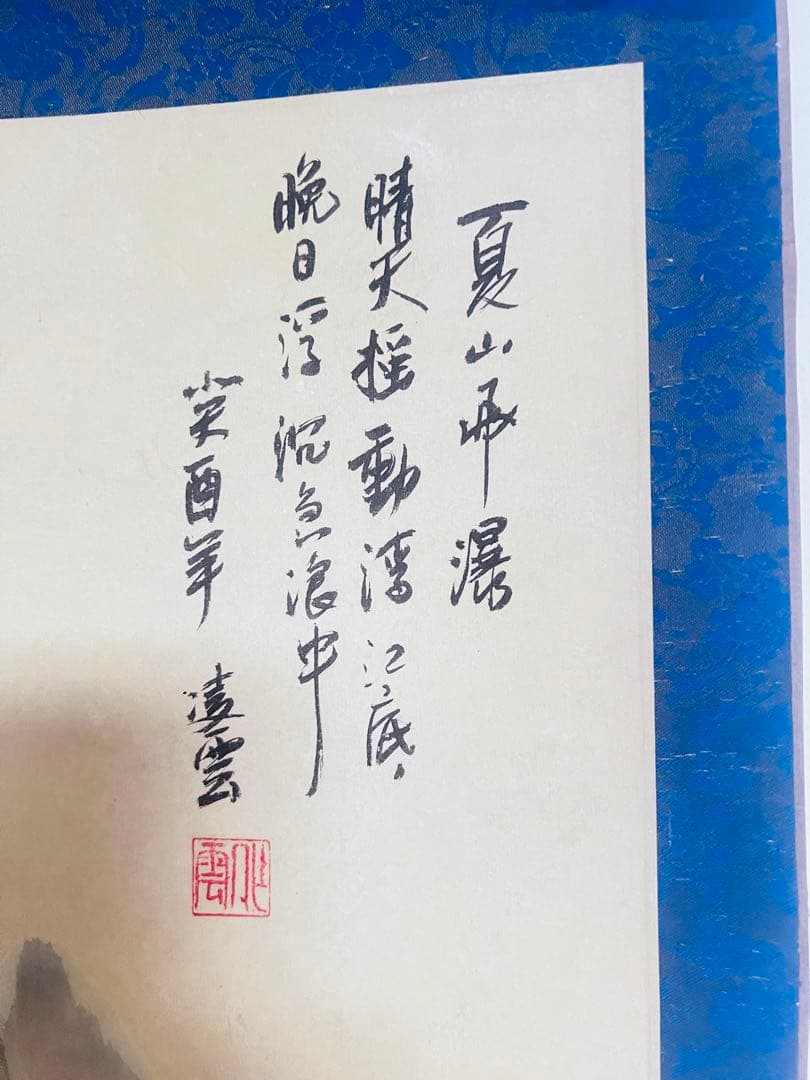 夏山飛瀑
晴天摇動清江底
晚日浮沉急浪中
癸酉年 凌雲
雲